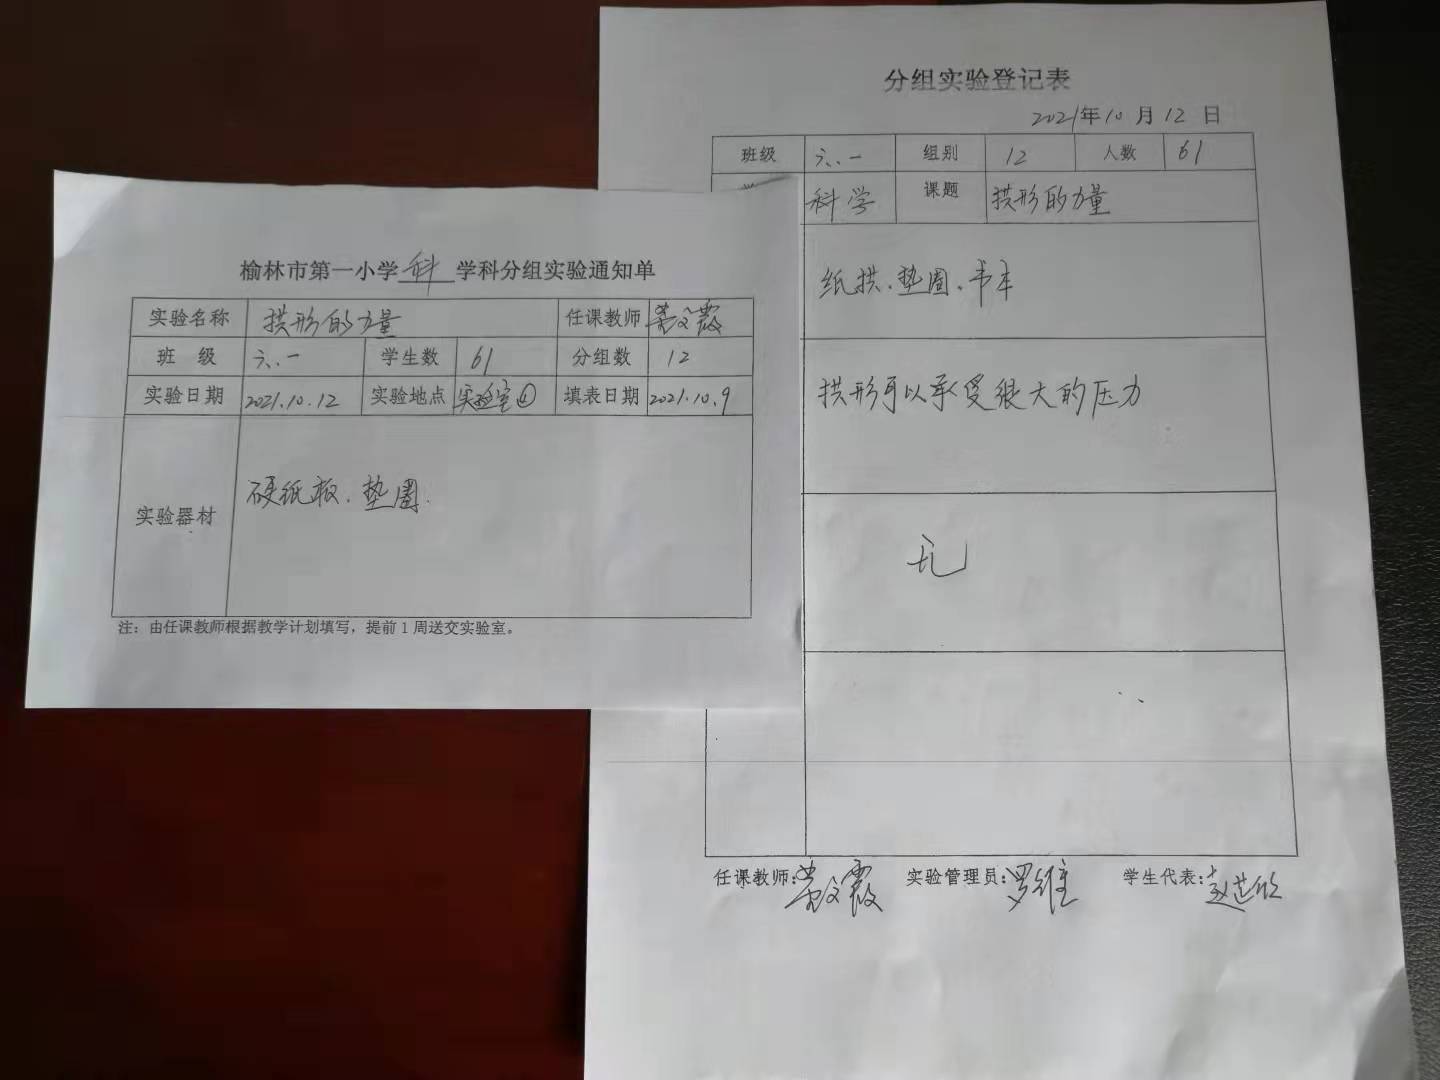 榆林市第一小学科学科分组实验通知单
实验名称 拱形的力量 任课教师
班 级 六.一 学生数 61 分组数 12
实验日期 2021.10.12 实验地点 实验室④ 填表日期 2021.10.9
实验器材 硬纸板、垫圈.
注：由任课教师根据教学计划填写，提前1周送交实验室。
分组实验登记表
2021年10月12日
班级 六.一 组别 12 人数 61
科学 课题 拱形的力量
纸拱、垫圈、书本
拱形可以承受很大的压力
无
任课教师： 实验管理员：罗维 学生代表：